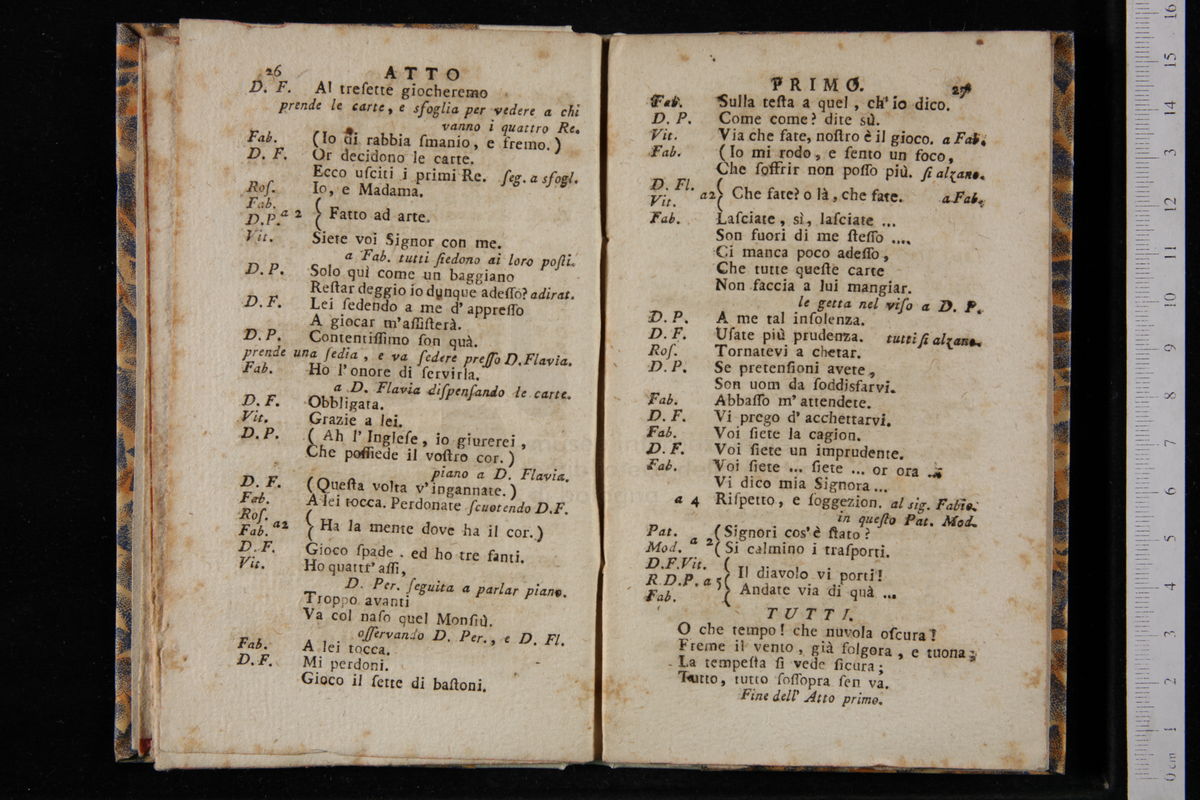 26 ATTO
D. F. Al tresette giocheremo
prende le carte, e sfoglia per vedere a chi
vanno i quattro Re.
Fab. (Io di rabbia smanio, e fremo.)
D. F. Or decidono le carte.
Ecco usciti i primi Re. seg. a sfogl.
Ros. Io, e Madama.
Fab.
D.P. a 2 { Fatto ad arte.
Vit. Siete voi Signor con me.
a Fab. tutti siedono ai loro posti.
D. P. Solo quì come un baggiano
Restar deggio io dunque adesso? adirat.
D. F. Lei sedendo a me d'appresso
A giocar m'assisterà.
D. P. Contentissimo son quà.
prende una sedia, e va sedere presso D.Flavia.
Fab. Ho l'onore di servirla.
a D. Flavia dispensando le carte.
D. F. Obbligata.
Vit. Grazie a lei.
D. P. (Ah l'Inglese, io giurerei,
Che possiede il vostro cor.)
piano a D. Flavia.
D. F. (Questa volta v'ingannate.)
Fab. A lei tocca. Perdonate scuotendo D.F.
Ros.
Fab. a2 { (Ha la mente dove ha il cor.)
D. F. Gioco spade. ed ho tre fanti.
Vit. Ho quattr'assi,
D. Per. seguita a parlar piano.
Troppo avanti
Va col naso quel Monsiù.
osservando D. Per., e D. Fl.
Fab. A lei tocca.
D. F. Mi perdoni.
Gioco il sette di bastoni.
PRIMO. 27
Fab. Sulla testa a quel, ch'io dico.
D. P. Come come? dite sù.
Vit. Via che fate, nostro è il gioco. a Fab.
Fab. (Io mi rodo, e sento un foco,
Che soffrir non posso più. si alzano.
D. Fl.
Vit. a2 { Che fate? o là, che fate. a Fab.
Fab. Lasciate, sì, lasciate ...
Son fuori di me stesso ....
Ci manca poco adesso,
Che tutte queste carte
Non faccia a lui mangiar.
le getta nel viso a D. P.
D. P. A me tal insolenza.
D. F. Usate più prudenza. tutti si alzano.
Ros. Tornatevi a chetar.
D. P. Se pretensioni avete,
Son uom da soddisfarvi.
Fab. Abbasso m'attendete.
D. F. Vi prego d'acchettarvi.
Fab. Voi siete la cagion.
D. F. Voi siete un imprudente.
Fab. Voi siete ... siete ... or ora ..
Vi dico mia Signora...
a 4 Rispetto, e soggezion. al sig. Fabio.
in questo Pat. Mod.
Pat. a 2 (Signori cos'è stato?
Mod. (Si calmino i trasporti.
D.F.Vit. { Il diavolo vi porti!
R.D.P. a 5
Fab. { Andate via di quà ...
TUTTI.
O che tempo! che nuvola oscura!
Freme il vento, già folgora, e tuona;
La tempesta si vede sicura;
Tutto, tutto sossopra sen va.
Fine dell' Atto primo.